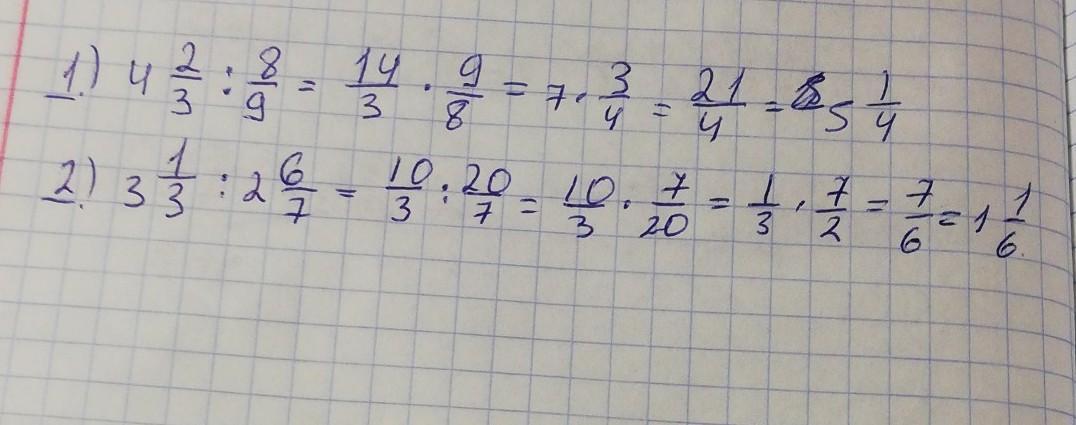 1.) 4 2/3 : 8/9 = 14/3 · 9/8 = 7 · 3/4 = 21/4 = 5 1/4
2.) 3 1/3 : 2 6/7 = 10/3 : 20/7 = 10/3 · 7/20 = 1/3 · 7/2 = 7/6 = 1 1/6.